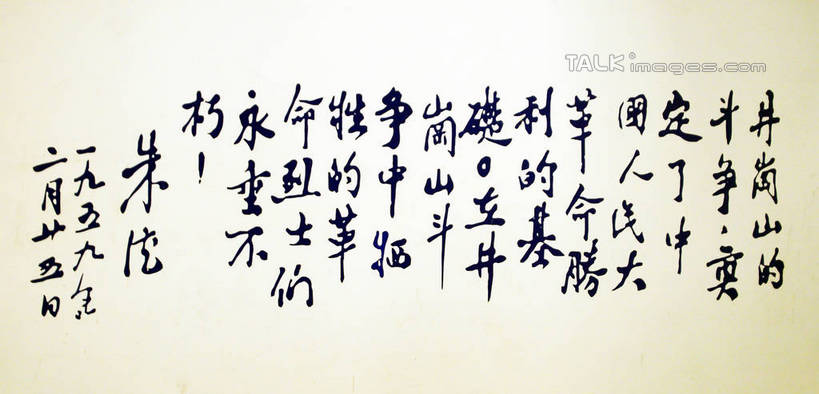 井崗山的
斗争、奠
定了中
國人民大
革命勝
利的基
礎。在井
崗山斗
争中牺
牲的革
命烈士们
永垂不
朽！
朱德
一九五九年
二月廿五日
TALKimages.com